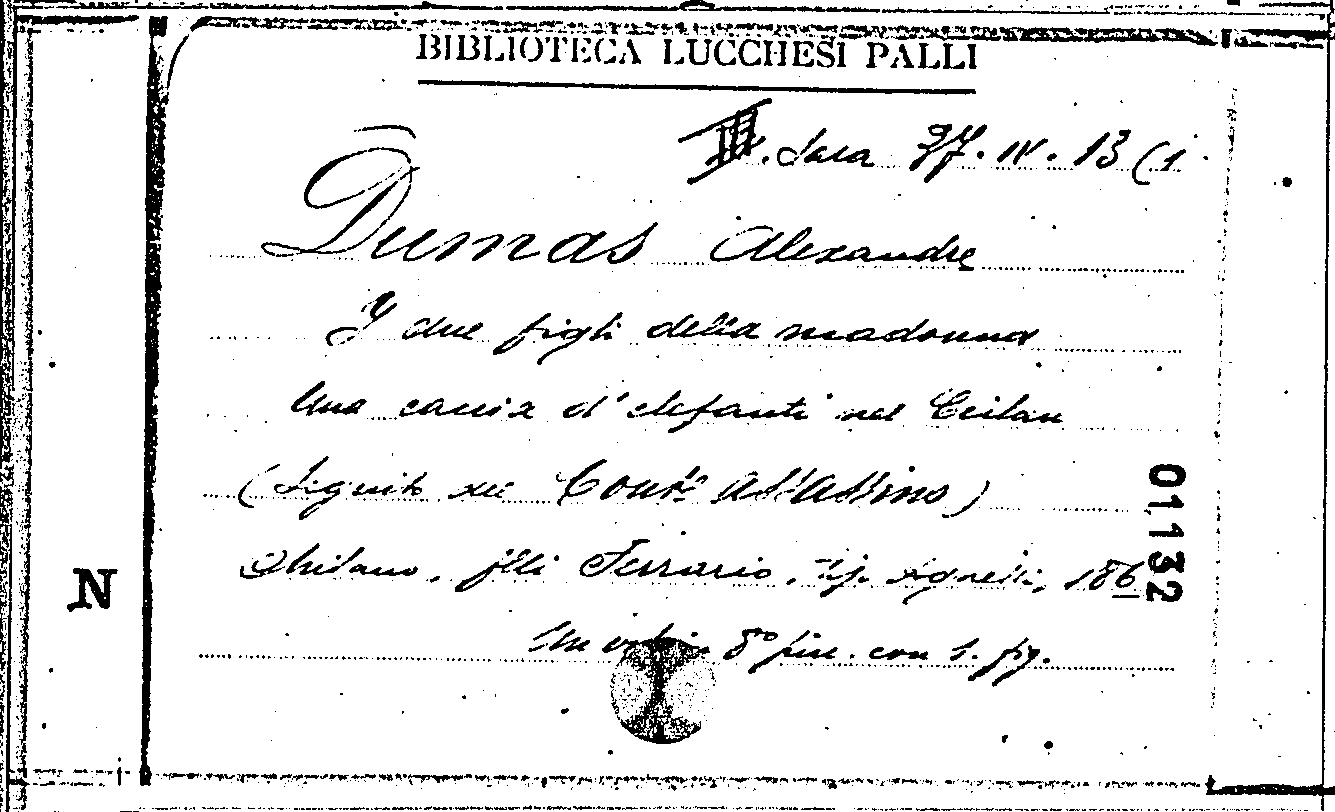 BIBLIOTECA LUCCHESI PALLI
III. Sara 37. IV. 13 (1
Dumas Alexandre
I due figli della madonna
Una caccia d'elefanti nel Ceilan
(Seguito dei Conti assassino)
Milano, flli Ferrario, tip. Agnelli, 186
Un vol. in 8° picc. con 1. fig.
01132
N